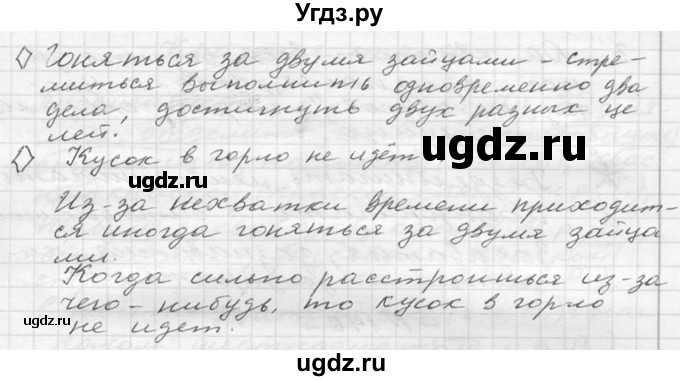 Угдз.ру
◊ Гоняться за двумя зайцами - стре-
миться выполнить одновременно два
дела, достигнуть двух разных це
лей.
◊ Кусок в горло не идёт
ugdz.ru
ugdz.ru
Из-за нехватки времени приходит-
ся иногда гоняться за двумя зайца
ми.
Когда сильно расстроишься из-за
чего-нибудь, то кусок в горло
не идет.
ugdz.ru
ugdz.ru
ugdz.ru